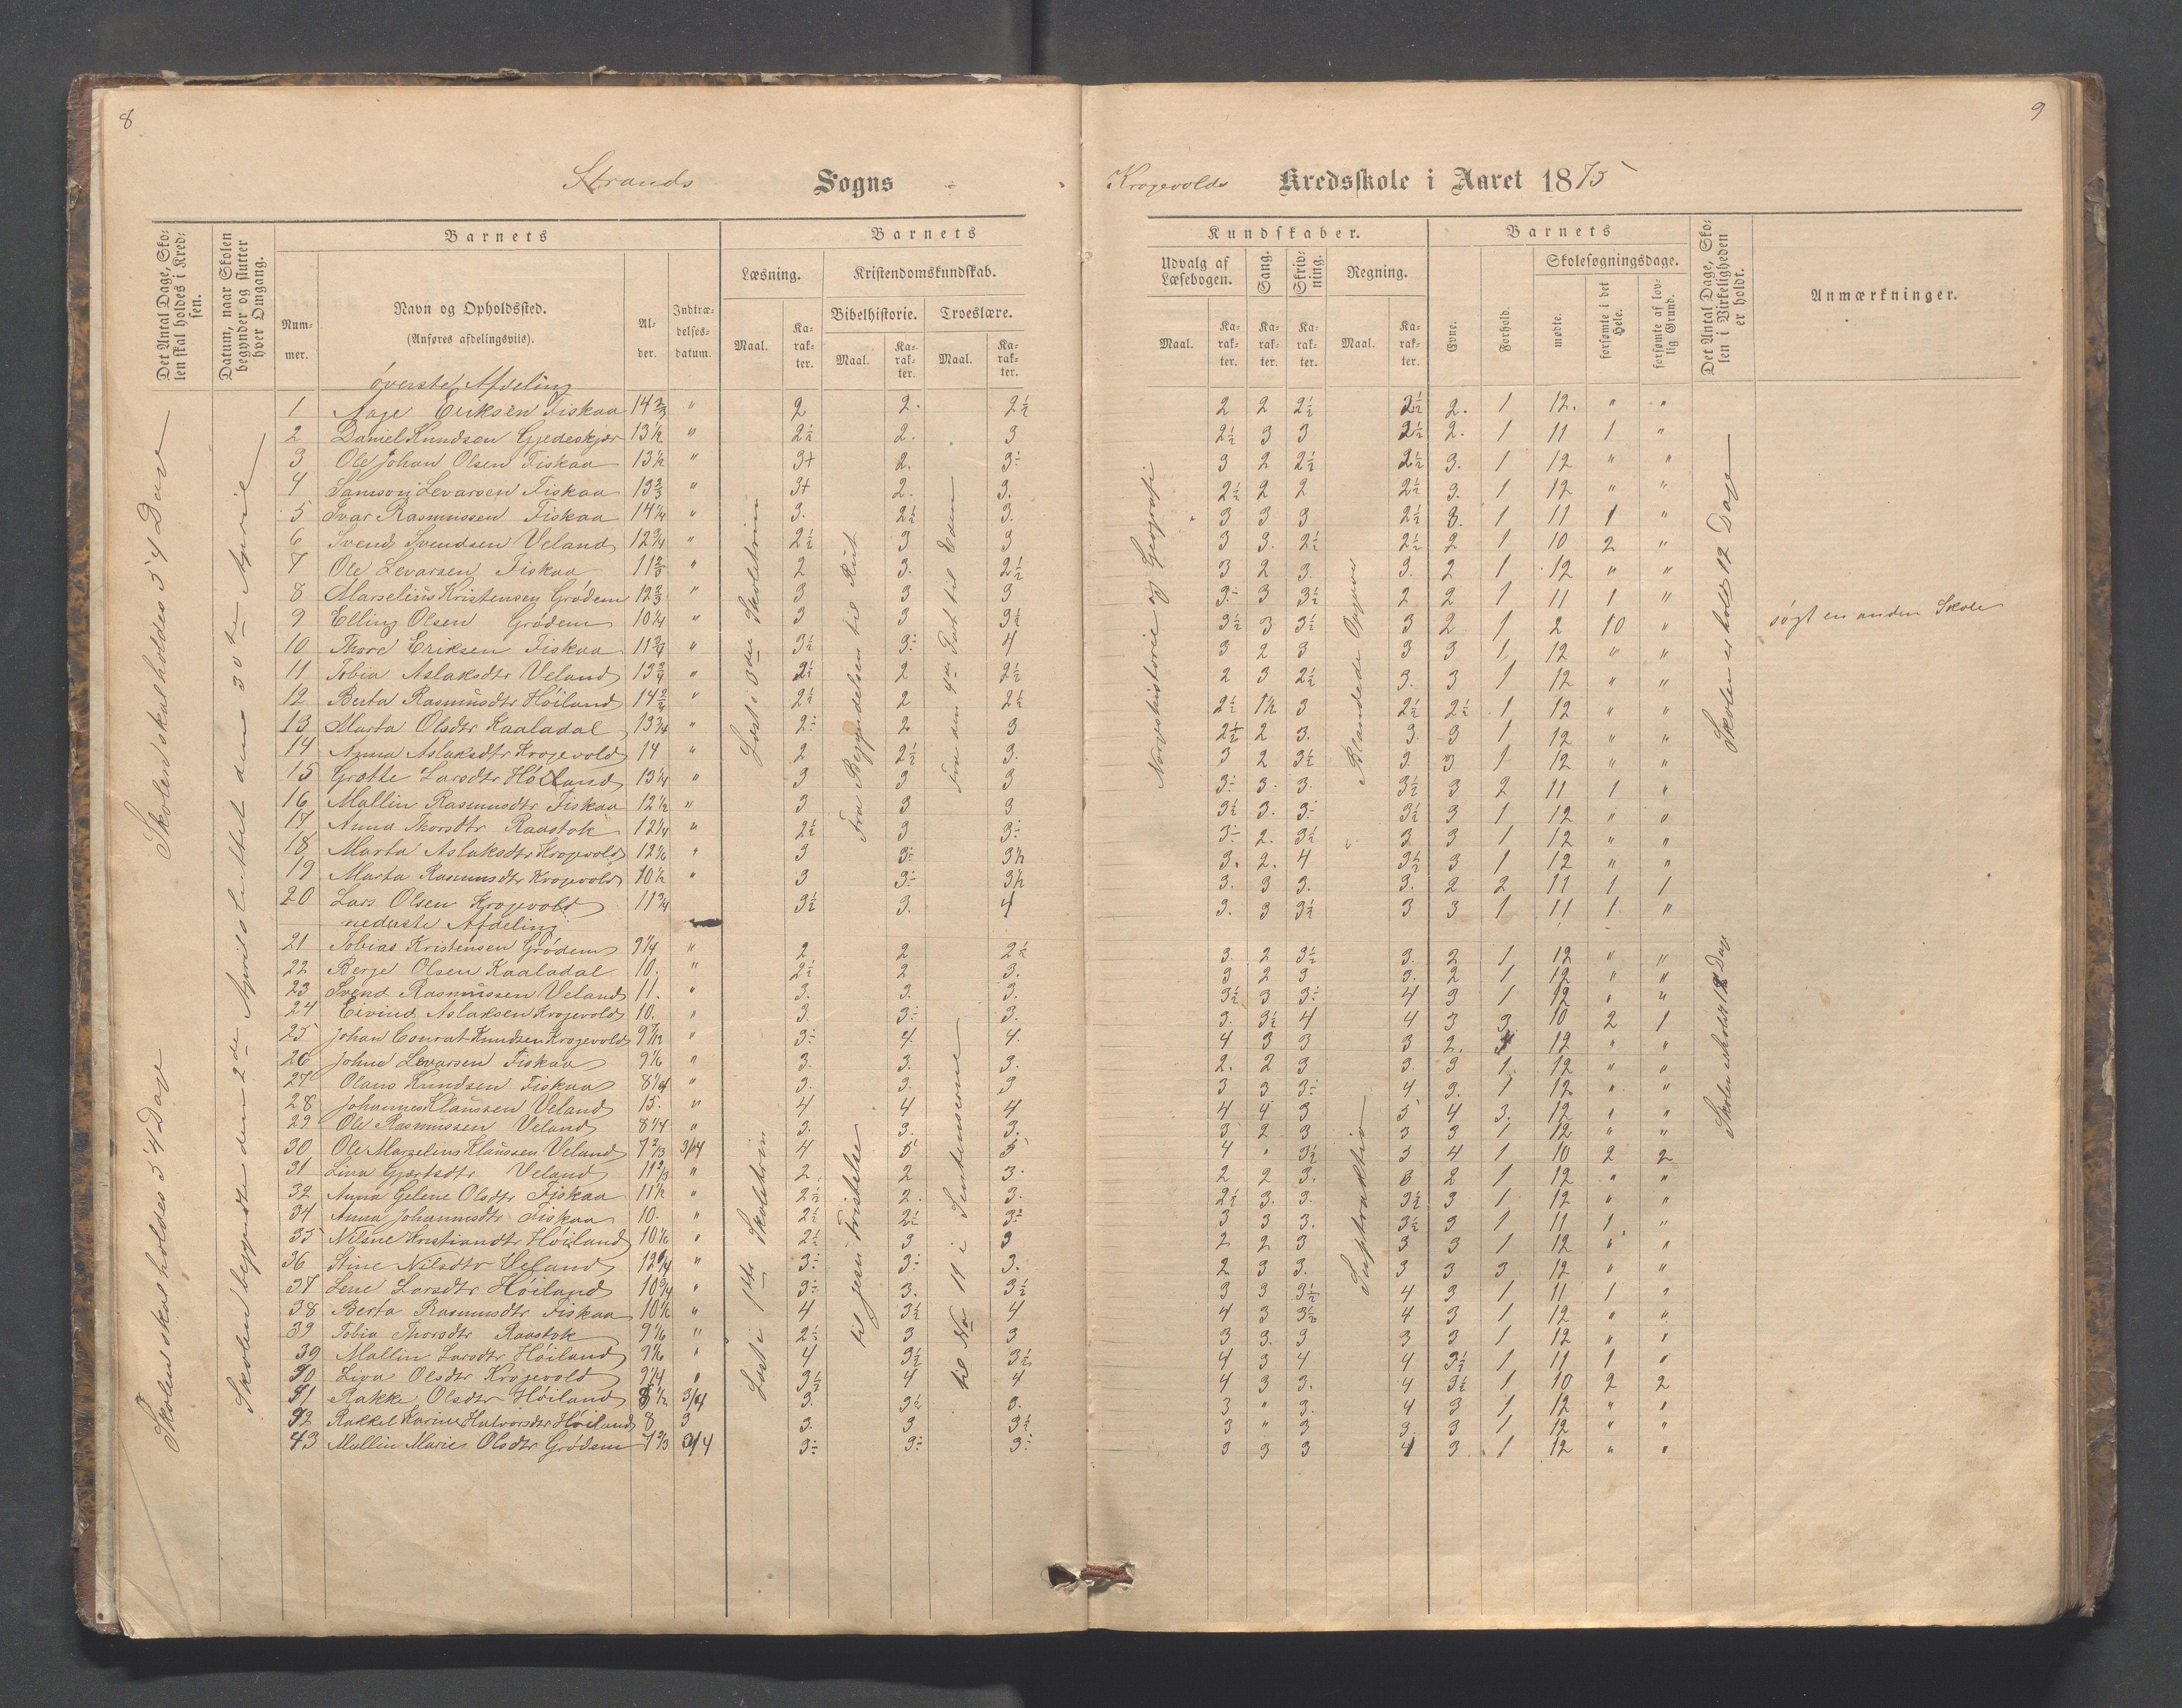 8
9
Strands Sogns
Krogevolds Kredsskole i Aaret 1875
Det Antal Dage, Skolen skal holdes i Kredsen.
Datum, naar Skolen begynder og slutter hver Omgang.
Barnets
Nummer.
Navn og Opholdssted.
(Anføres afdelingsviis).
Alder.
Indtrædelsesdatum.
Barnets
Læsning.
Maal.
Karakter.
Kristendomskundskab.
Bibelhistorie.
Maal.
Karakter.
Troeslære.
Maal.
Karakter.
Kundskaber.
Udvalg af Læsebogen.
Maal.
Karakter.
Sang.
Karakter.
Skrivning.
Karakter.
Regning.
Maal.
Karakter.
Barnets
Evne.
Forhold.
Skolesøgningsdage.
mødte.
forsømte i det Hele.
forsømte af lovlig Grund.
Det Antal Dage, Skolen i Virkeligheden er holdt.
Anmærkninger.
Skolen skal holdes 54 Dage
Skolen skal holdes 54 Dage
Skolen begyndte den 2de April sluttet den 30te April
Læst i 3die Skoletrin
Fra Begyndelsen til Rut
Fra den 4de Part til Enden
Norgeshistorie og Geografi
Blandede Opgaver
Skolen er holdt 12 Dage
Læst i 1ste Skoletrin
til Jesu Fristelse
til No 11 i Sentenserne
Suptraktion
Skolen er holdt 12 Dage
øverste Afdeling
1 Aage Eriksen Fiskaa 14 2/3 " 2 2. 2½ 2 2 2½ 2½ 2. 1 12. " "
2 Daniel Knudsen Gjedeskjær 13½ " 2½ 2. 3 2½ 3 3 2½ 2. 1 11 1 "
3 Ole Johan Olsen Fiskaa 13½ " 3+ 2. 3÷ 3 2 2½ 2½ 3. 1 12 " "
4 Samson Levarsen Fiskaa 13 2/3 " 3+ 2. 3. 2½ 2 2 2½ 3. 1 12 " "
5 Ivar Rasmussen Fiskaa 14¼ " 3. 2½ 3. 3 3 3 2½ 3. 1 11 1 "
6 Svend Svendsen Veland 12¾ " 2½ 3 3 3 3. 2½ 2½ 2 1 10 2 "
7 Ole Levarsen Fiskaa 11 2/3 " 2 3. 2½ 3 2 3. 3. 2 1 12 " "
8 Marselius Kristensen Grødem 12 2/3 " 3 3 3 3÷ 3 3½ 2 2 1 11 1 "
9 Elling Olsen Grødem 10¼ " 3 3 3½ 3½ 3 3½ 3 2 1 2 10 " søgt en anden Skole
10 Thore Eriksen Fiskaa 11¾ " 3½ 3÷ 4 3 2 3 3 3 1 12 " "
11 Tobia Aslaksdtr Veland 13¾ " 2½ 2 2½ 2 3 2½ 3. 3 1 12 " "
12 Berta Rasmusdtr Høiland 14 2/4 " 2½ 2 2½ 2½ 1½ 3 2½ 2½ 1 12 " "
13 Marta Olsdtr Kaaladal 13¾ " 2÷ 2 3 2½ 2 3. 3. 3 1 12 " "
14 Anna Aslaksdtr Krogevold 14 " 2 2½ 3. 3 2 3½ 3. 3 1 12 " "
15 Grotte Larsdtr Høiland 13¼ " 3 3 3 3÷ 3. 3. 3½ 3 2 11 1 "
16 Mallin Rasmusdtr Fiskaa 12½ " 3 3 3 3½ 3. 3÷ 3½ 3 1 12 " "
17 Anna Thorsdtr Raastok 12¼ " 2½ 3 3÷ 3÷ 2. 3½ 3 3 1 12 " "
18 Marta Aslaksdtr Krogevold 12 1/6 " 3 3÷ 3½ 3. 2. 4 3½ 3 1 12 " "
19 Marta Rasmusdtr Krogevold 10½ " 3 3÷ 3½ 3. 3 3. 3. 2 2 11 1 1
20 Lars Olsen Krogevold 11¾ 3½ 3. 4 3. 3 3½ 3 3 1 11 1 "
nederste Afdeling
21 Tobias Kristensen Grødem 9¼ " 2 2 2½ 3. 2 3½ 3. 2 1 12 " "
22 Berje Olsen Kaaladal 10. " 2½ 2 3. 3 2 3 3. 2 1 12 " "
23 Svend Rasmussen Veland 11. " 3. 3. 3. 3½ 3 3÷ 4 3 1 12 " "
24 Eivind Aslaksen Krogevold 10. " 3. 3÷ 3. 3. 3½ 4 4 3 3 10 2 1
25 Johan Conrat Knudsen Krogevold 9 7/12 " 3÷ 4. 4. 4 3 3 3 2. 12 " "
26 John Levarsen Fiskaa 9 1/6 " 3. 3. 3. 2. 2 3 3. 3 1 12 " "
27 Olaus Knudsen Fiskaa 8¼ " 3. 3. 3 3 3 3÷ 4 3. 1 12 " "
28 Johannes Klaussen Veland 15. " 4 4 4 4 4 3 5 4 3. 12 " "
29 Ole Rasmussen Veland 8¼ " 3. 3. 3. 3 2 3 3 3 1 12 " "
30 Ole Marselius Klaussen Veland 7 2/3 3/04 4 5 5 4 " 3½ 5 4 1 10 2 2
31 Lina Gjertsdtr Veland 11 2/3 " 2. 2 3. 2 2 3. 3 2 1 12 " "
32 Anna Gelene Olsdtr Fiskaa 11½ " 2½ 2. 3. 2½ 3. 3. 3½ 3 1 12 " "
34 Anna Johannsdtr Fiskaa 10. " 2½ 2½ 3÷ 3 3 3. 3½ 3 1 11 1 "
35 Nilsne Kristiandtr Høiland 10 1/6 " 2½ 3 3 2 2 3 3 3 1 12 " "
36 Stine Nilsdtr Veland 12¼ " 3÷ 3÷ 3. 2 3 3. 3 3 3 12 " "
37 Lene Larsdtr Høiland 10¾ " 3÷ 3. 3½ 3 3 3½ 4 3 1 11 1 "
38 Berta Rasmusdtr Fiskaa 10½ " 4 3½ 4 4 3 3½ 4 3 1 12 " "
39 Tobia Thorsdtr Raastok 9 1/6 " 2½ 3 3 3 3. 3 3 3 1 12 " "
39 Mallin Larsdtr Høiland 9 1/6 " 4 3½ 3½ 4 3 4 4 3½ 1 11 1 "
40 Liva Olsdtr Krogevold 9¼ " 3½ 4 4 4 3 3. 4 3½ 1 10 2 2
41 Rakke Olsdtr Høiland 8½ 3/04 3. 3½ 3. 3 " 3. 4 3 1 12 " "
42 Rakkel Karine Halvorsdtr Høiland 8 3 3. 3 3½ 3 " 3 3. 3 1 12 " "
43 Mallin Marie Olsdtr Grødem 7 2/3 3/4 3÷ 3÷ 3÷ 3 3 3 4 3 1 12 " "